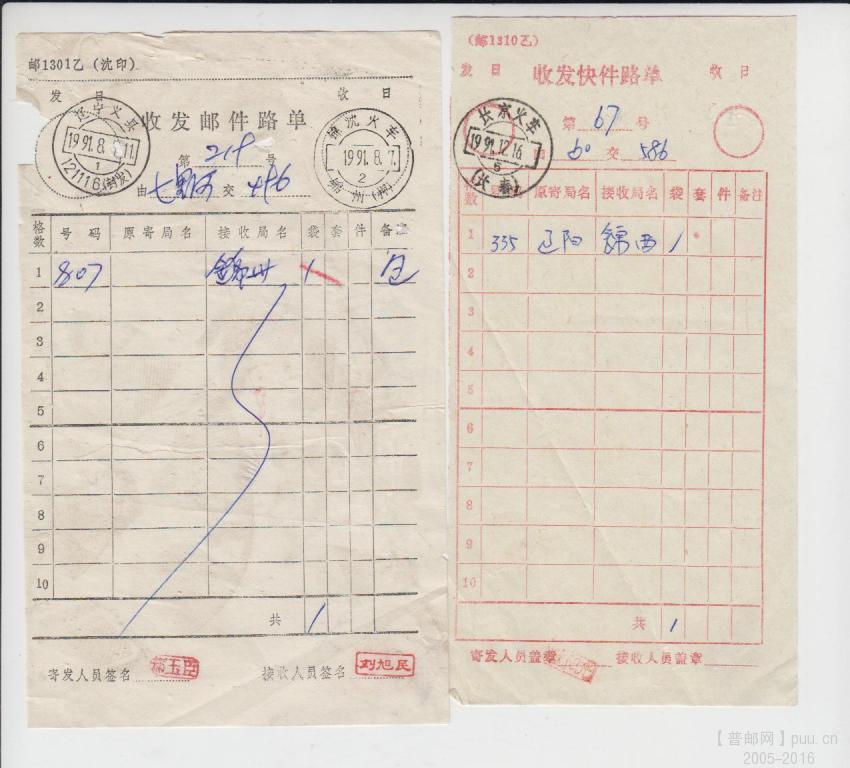 邮1301乙（沈印）
发 日
收 日
收发邮件路单
辽宁义县
1991.8.
11
1
121116
锦沈火车
1991.8.7.
2
锦州
第 219 号
由 七里河 交 496
格数 号码 原寄局名 接收局名 袋 套 件 备注
1 807 锦州 1
2
3
4
5
6
7
8
9
10
共 1
寄发人员签名
接收人员签名 刘旭民
（邮1310乙）
发 日
收 日
收发快件路单
长京火车
1991.12.16
6
（长春）
第 67 号
由 60 交 586
格数 原寄局名 接收局名 袋 套 件 备注
1 335 辽阳 锦西 1
2
3
4
5
6
7
8
9
10
共 1
寄发人员盖章
接收人员盖章
【普邮网】puu.cn
2005-2016